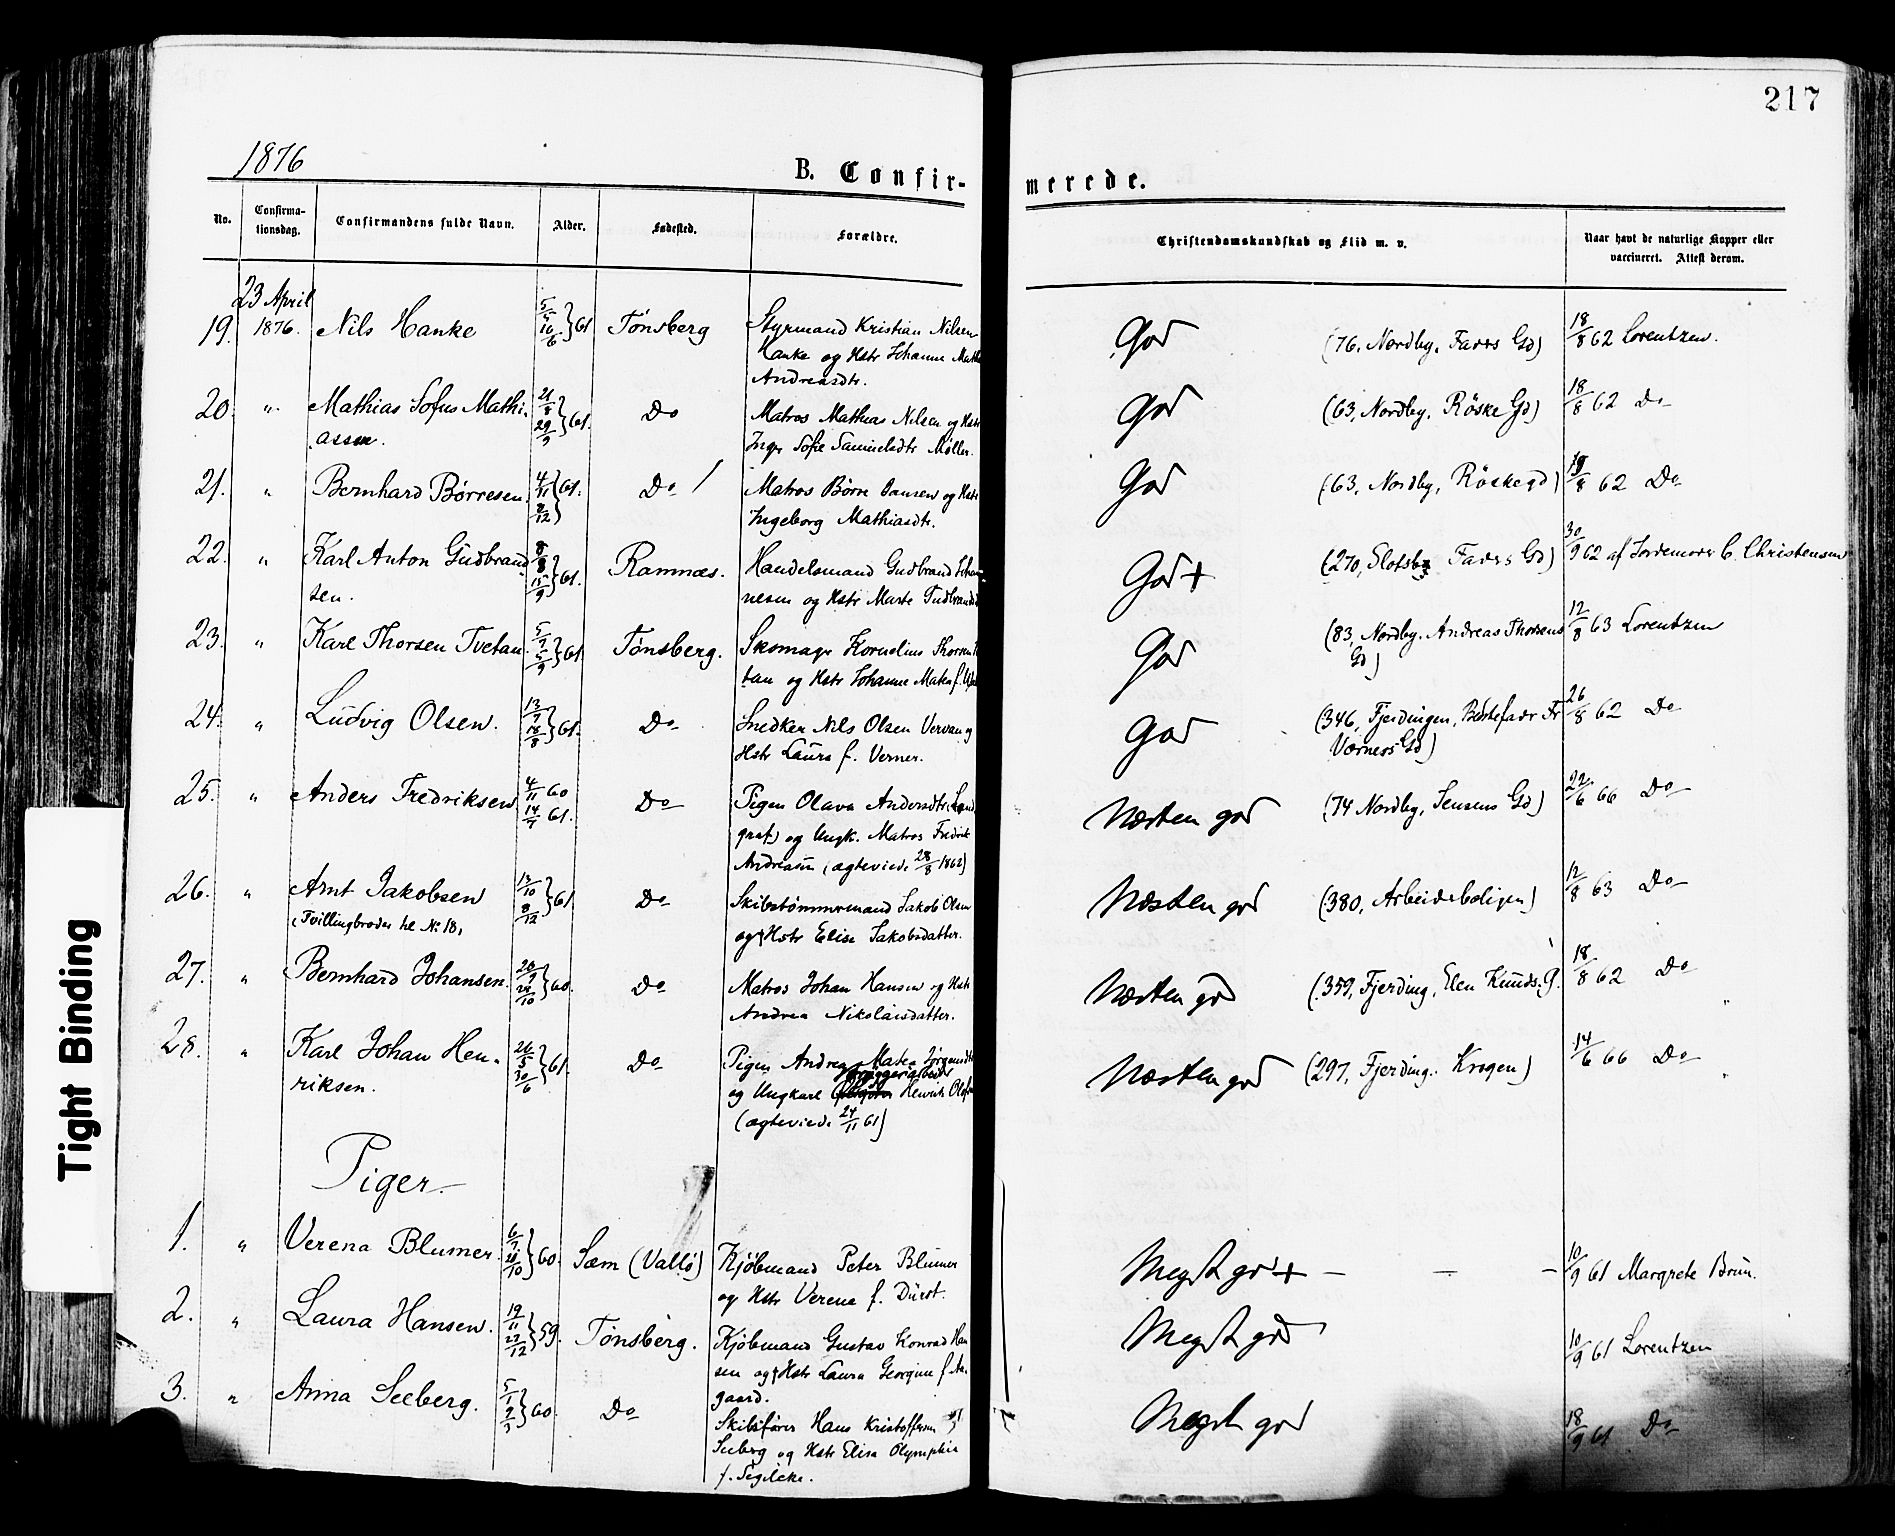 217
1876
B. Confir-
merede.
No.
Confirma-
tionsdag.
Confirmandens fulde Navn.
Alder.
Fødested.
Forældre.
Christendomskundskab og Flid m. v.
Naar havt de naturlige Kopper eller
vaccineret. Attest derom.
23 April
19. 1876. Nils Hanke 5/5 16/6 } 61 Tønsberg Styrmand Kristian Nilsen
Hanke og Hstr Johanne
Andreasdtr.
God (76, Nordby, Faders Gd) 18/8 62 Lorentzen.
20. " Mathias Sofus Mathi- 21/8 29/9 } 61. Do Matros Mathias Nilsen og Hstr
assen. Inger Sofie Samuelsdtr Møller.
God (63, Nordby, Röske Gd) 18/8 62 Do
21. " Bernhard Børresen 4/11 /12 } 61. Do / Matros Børre Jansen og Hstr
Ingeborg Mathiasdtr.
God (63, Nordby, Röskegd) /8 62 Do
22. " Karl Anton Gudbrand- 8/8 15/9 } 61. Ramnæs. Handelsmand Gudbrand Johan-
sen. nesen og Hstr Marte Gudbrandsd
God + (270, Slotsb, Faders Gd) 30/9 62 af Jordemoder C. Christensen
23. " Karl Thorsen Tvetan 5/7 /9 } 61. Tønsberg. Skomager Kornelius Thorsen
tan og Hstr Johanne Maten f.
God (83, Nordby. Andreas Thorsens
Gd) 12/8 63 Lorentzen
24. " Ludvig Olsen. 13/7 18/8 } 61. Do Snedker Nils Olsen Vervang
Hstr Laura f. Verner.
God (346, Fjerdingen, Bestefader Fr
Værners Gd) 26/8 62 Do
25. " Anders Fredriksen 4/11 60 14/7 61. Do Pigen Olava Andersdtr
og Ungk. Matros Fredrik
Andreasen (ægteviede 28/8 1862)
Næsten god (74 Nordby, Jensens Gd) 22/6 66 Do
26. " Arnt Jakobsen 13/10 8/12 } 61 Do Skibstømmermand Jakob Olsen
(Tvillingbroder til No 18) og Hstr Elise Jakobsdatter.
Næsten god (380, Arbeiderboligen) 12/8 63 Do
27. " Bernhard Johansen. 20/9 28/10 } 60. Do Matros Johan Hansen og Hstr
Andrea Nikolaisdatter.
Næsten god (359, Fjerding, Elen Knuds. G. 18/8 62 Do
28. " Karl Johan Hen- 26/5 30/6 } 61. Do Pigen Andrea Maten Jørgensdtr
riksen. og Ungkarl Henrik
(ægteviede 24/11 61)
Næsten god (297, Fjerding. Krogen) 14/6 66 Do
Piger
1. " Verena Blumer 6/7 28/10 } 60. Sæm (Vallø) Kjøbmand Peter Blumer
og Hstr Verena f. Dürst.
Meget god + — — — 10/9 61 Margrete Brun.
2. " Laura Hansen. 19/11 27/12 } 59. Tønsberg. Kjøbmand Gustav Konrad Han
sen og Hstr Laura Georgine f. Aa
gaard.
Meget god 10/9 61 Lorentzen
3. " Anna Seeberg. 5/1 } 60. Do Skibsfører Hans Kristoffersen
Seeberg og Hstr Elisa Olymphia
f.
Meget god 18/9 61 Do
Tight Binding